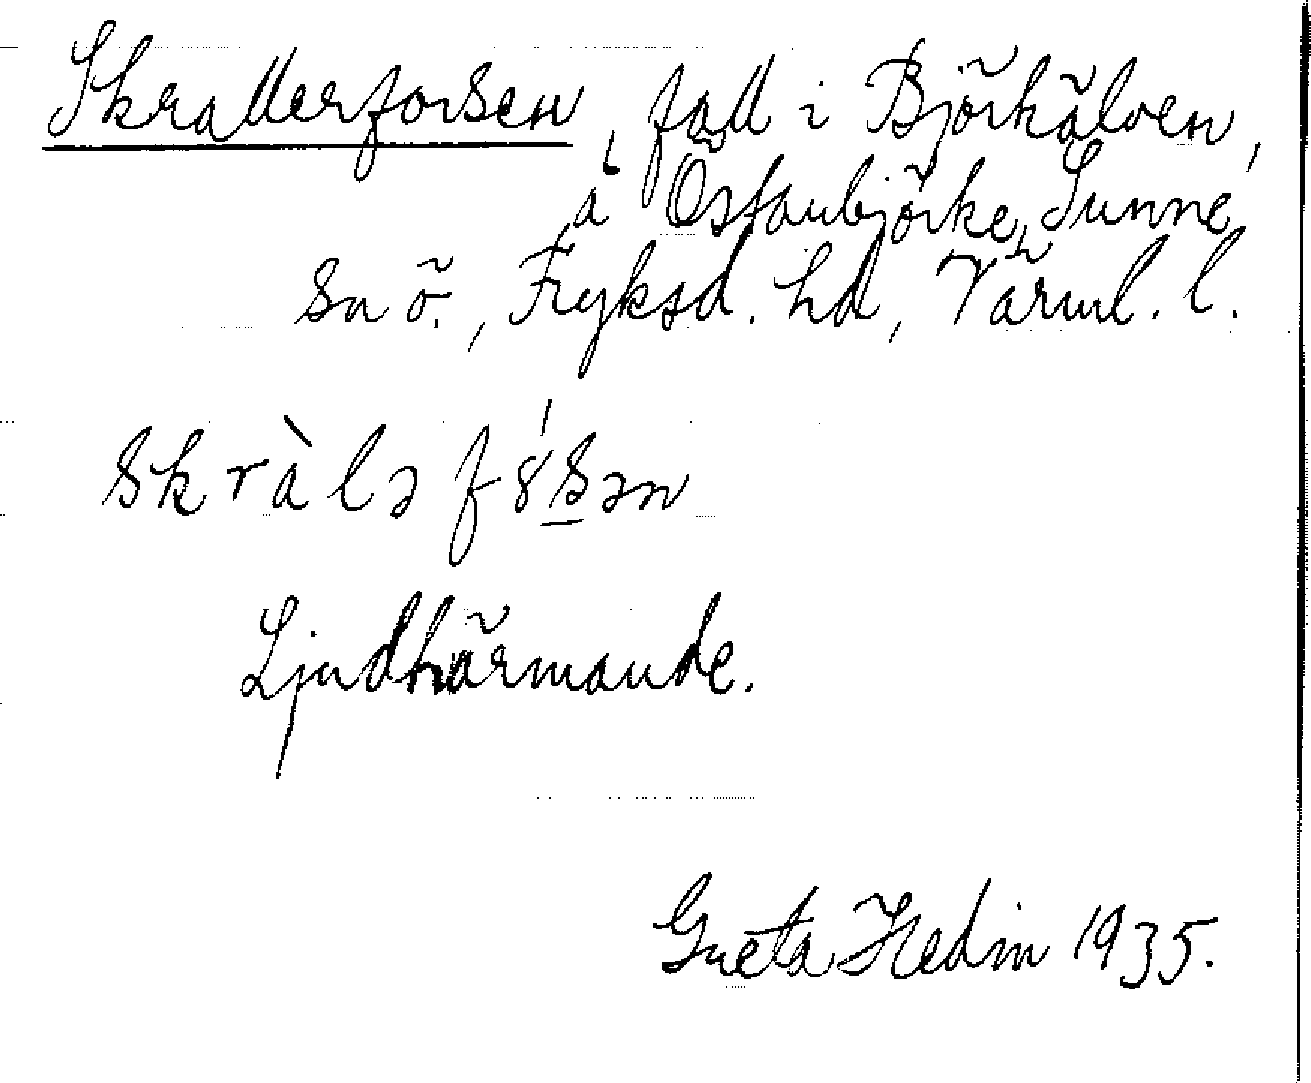 Skrallerforsen, fall i Björkälven,
å Östanbjörke, Sunne
sn ö., Fryksd. hd, Värml. l.
skràlə fɞ́s̱ən
Ljudhärmande.
Greta Hedin 1935.